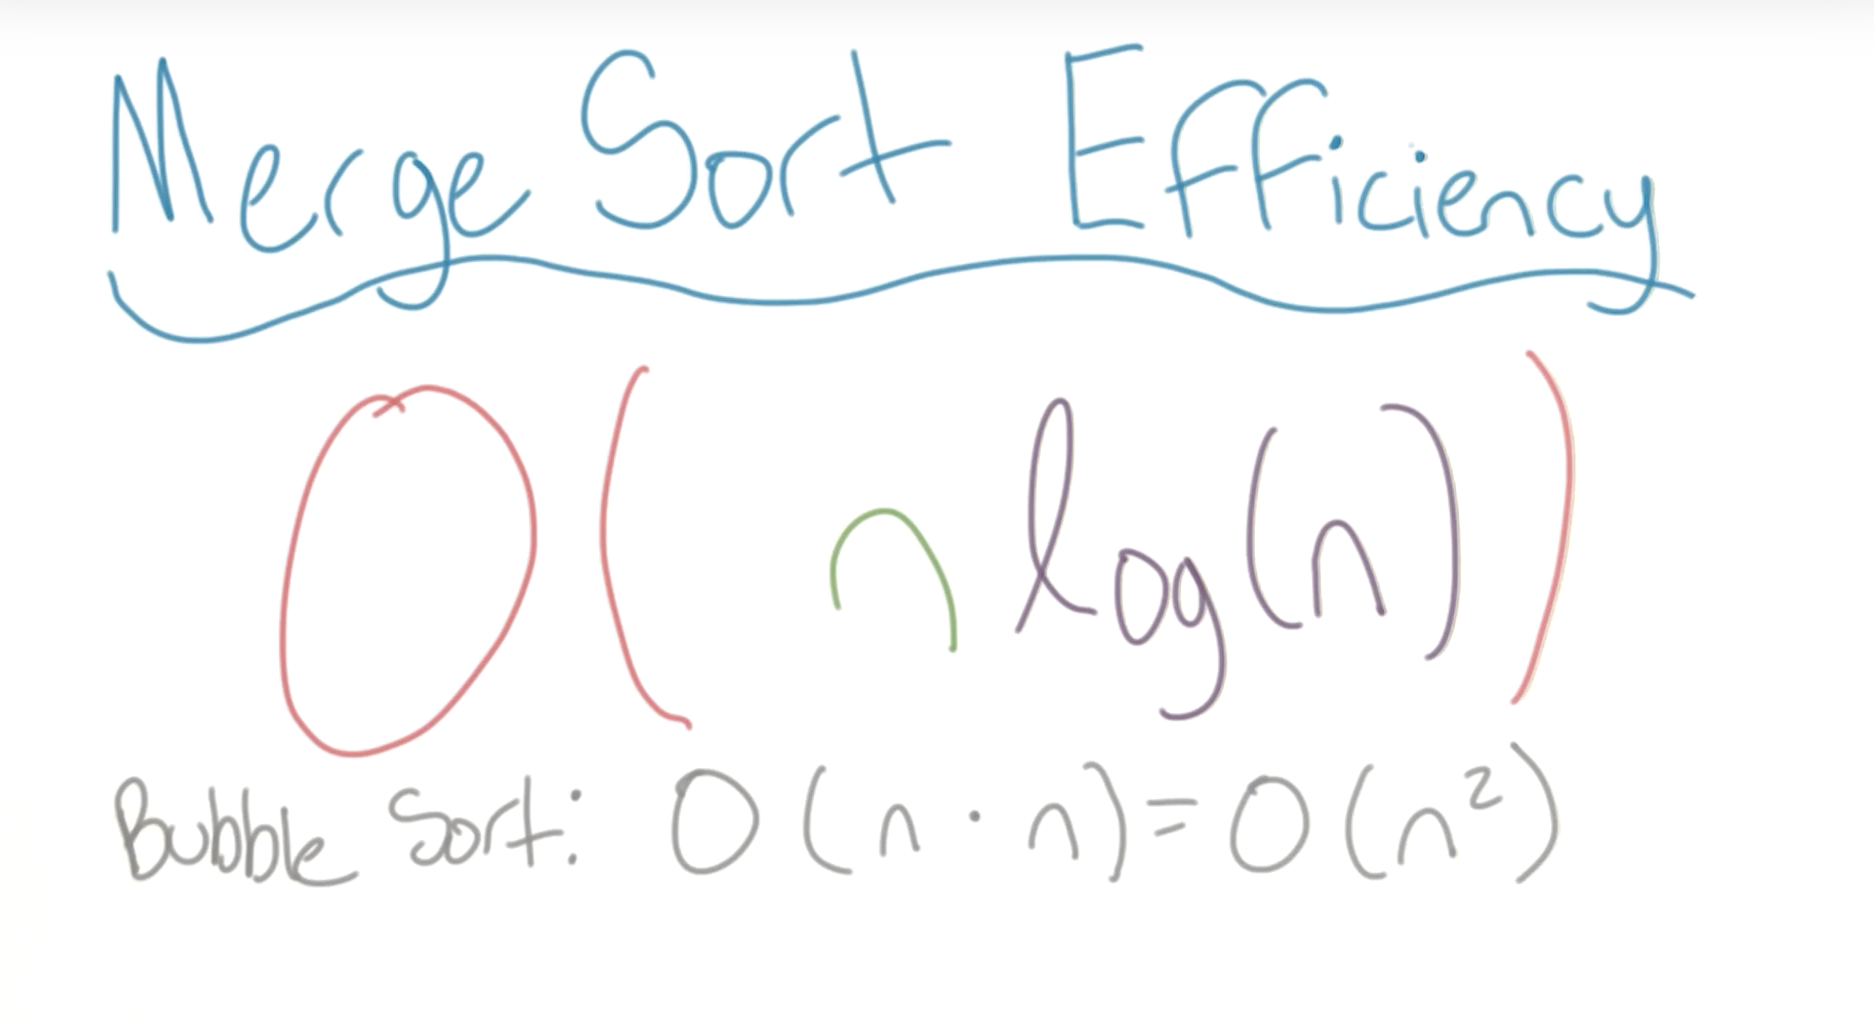 Merge Sort Efficiency
O( n log(n))
Bubble Sort: O(n · n) = O(n²)